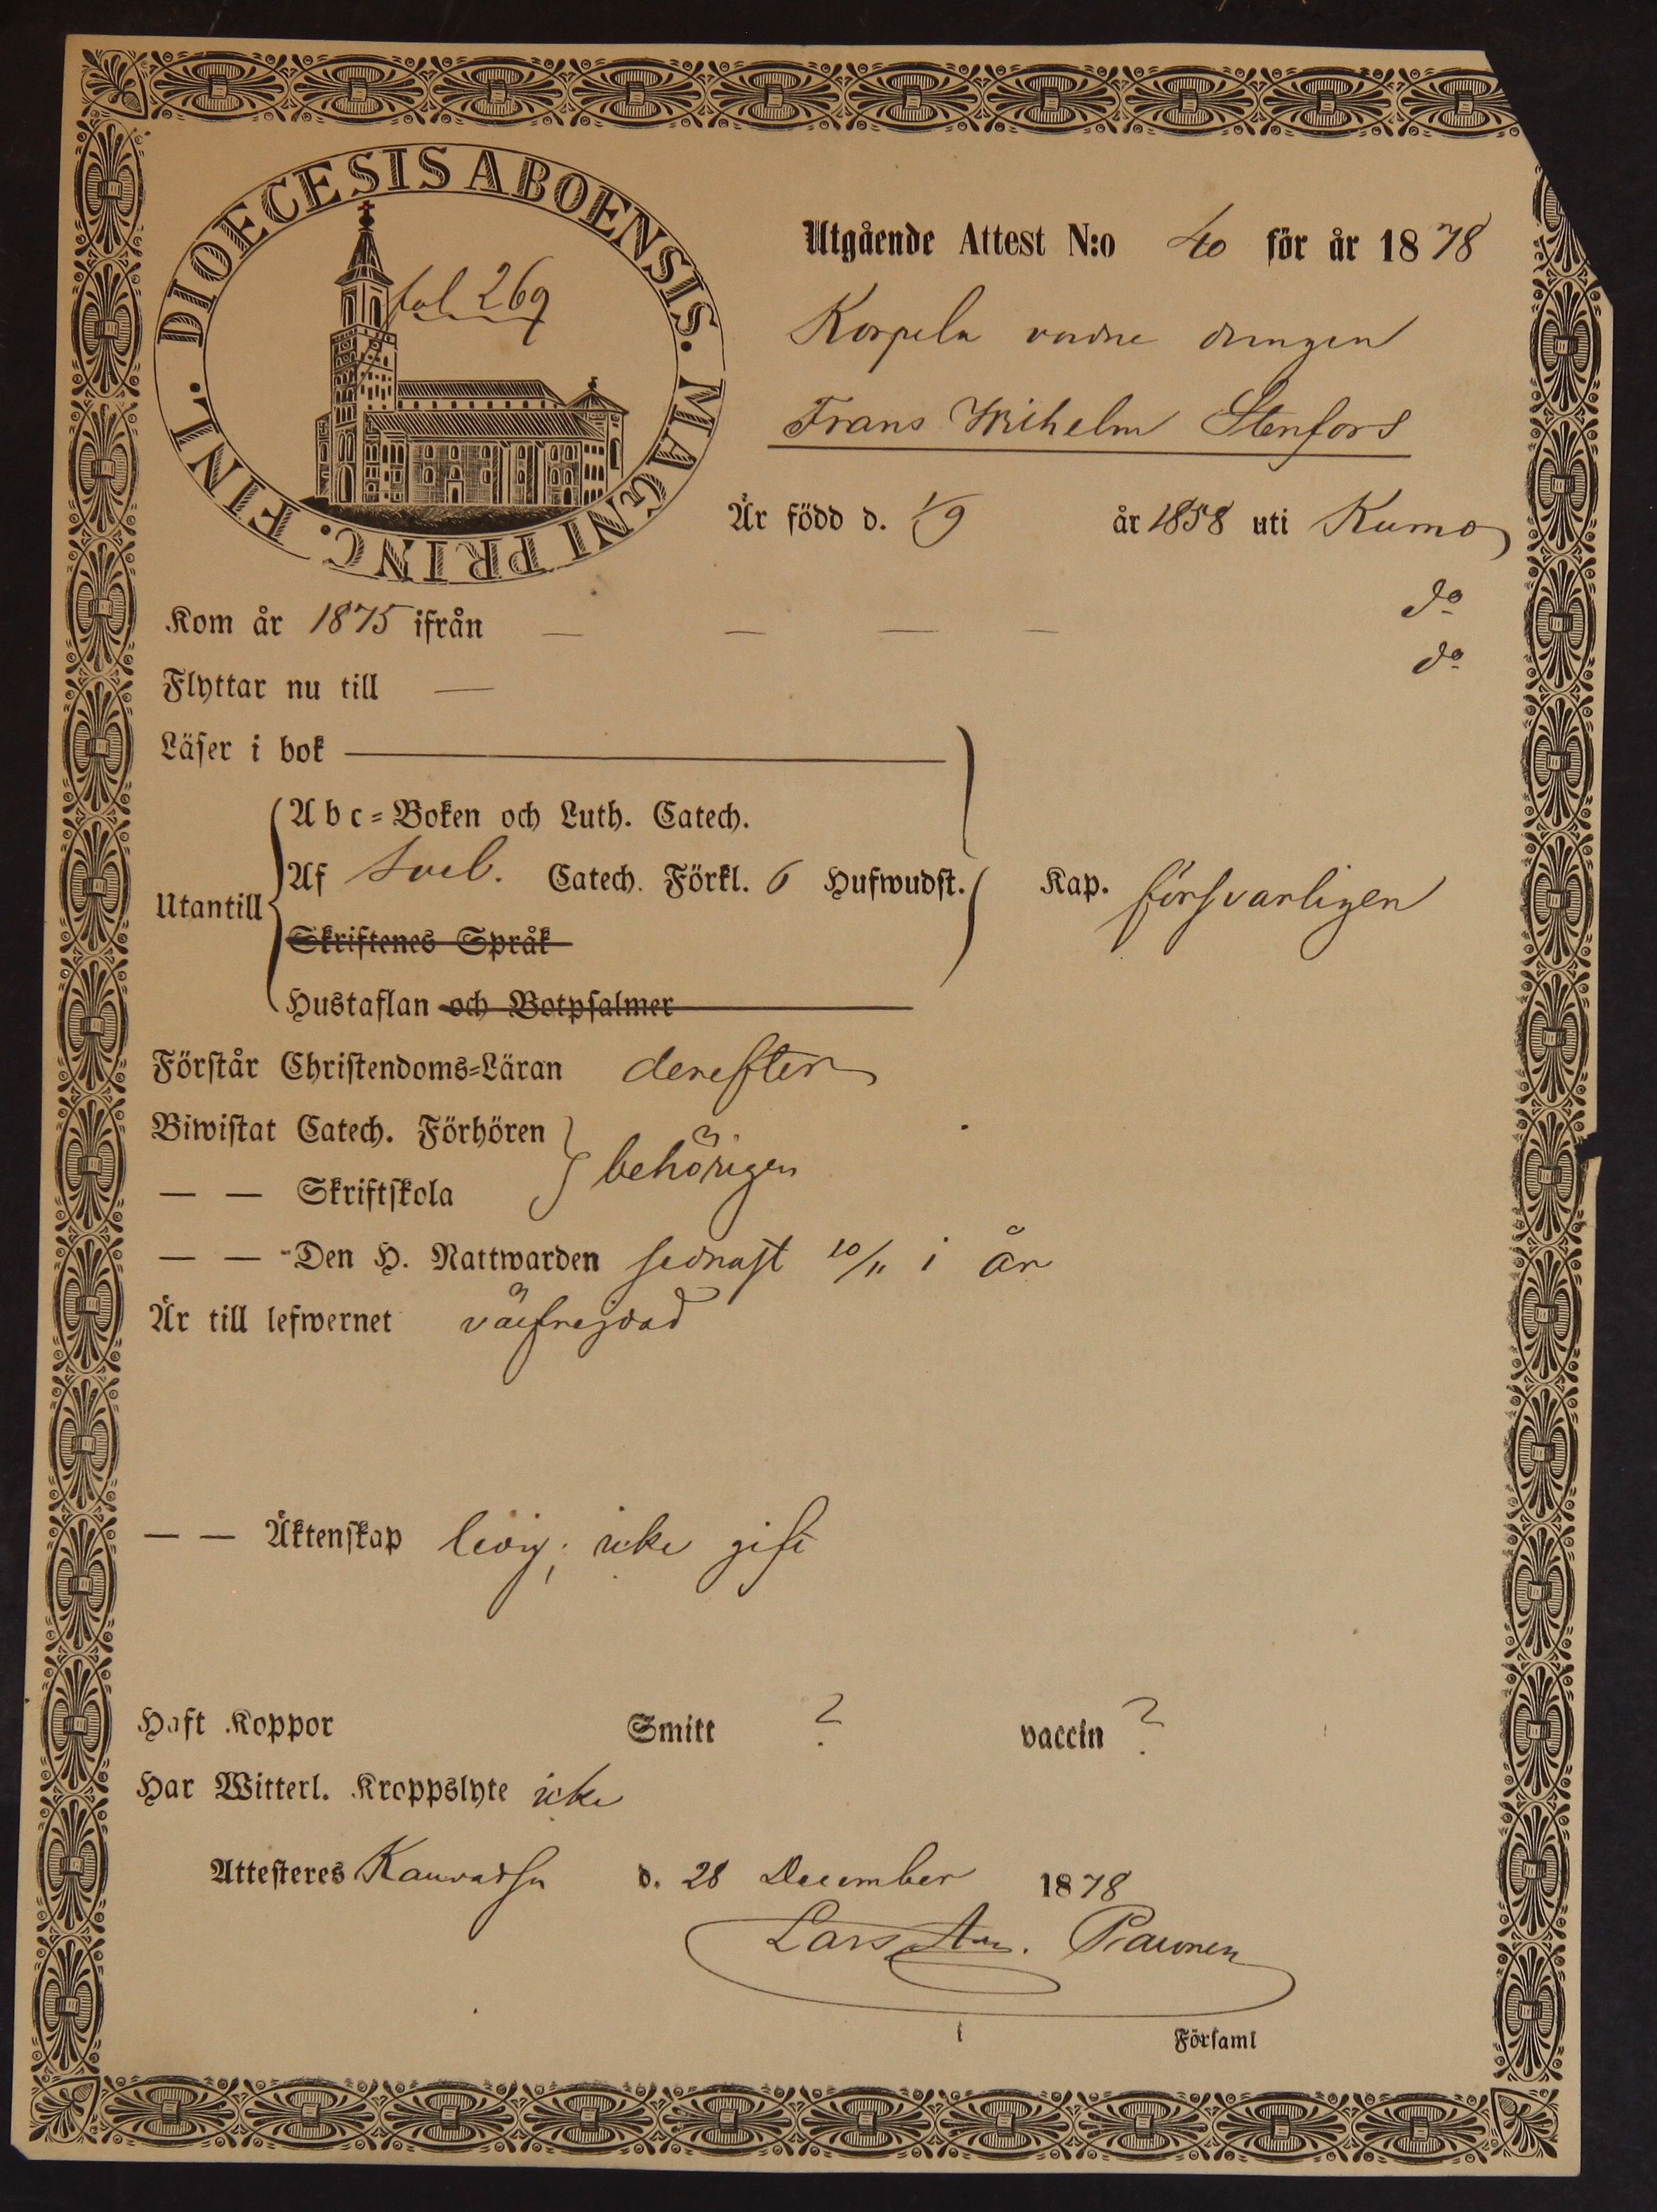 DIOECESIS ABOENSIS. MAGNI PRINC. FINL.
fol 269
Utgående Attest N:o 40 för år 1878
Korpela vadne drengen
Frans Wilhelm Stenfors
Är född d. 1/9 år 1858 uti Kumo
Kom år 1875 ifrån — — — — do
Flyttar nu till — do
Läser i bok
Utantill
Abc-Boken och Luth. Catech.
Af Sveb. Catech. Förkl. 6 Hufwudst. Kap. försvarligen
Skriftenes Språk
Hustaflan och Botpsalmer
Förstår Christendoms-Läran derefter
Biwistat Catech. Förhören
— — Skriftskola behörigen
— — Den H. Nattwarden sednast 10/11 i år
Är till lefwernet välfrejdad
— — Äktenskap ledig; icke gift
Haft Koppor Smitt ? vaccin ?
Har Witterl. Kroppslyte icke
Attesteres Kauvatsa d. 28 December 1878
Lars
i Församl